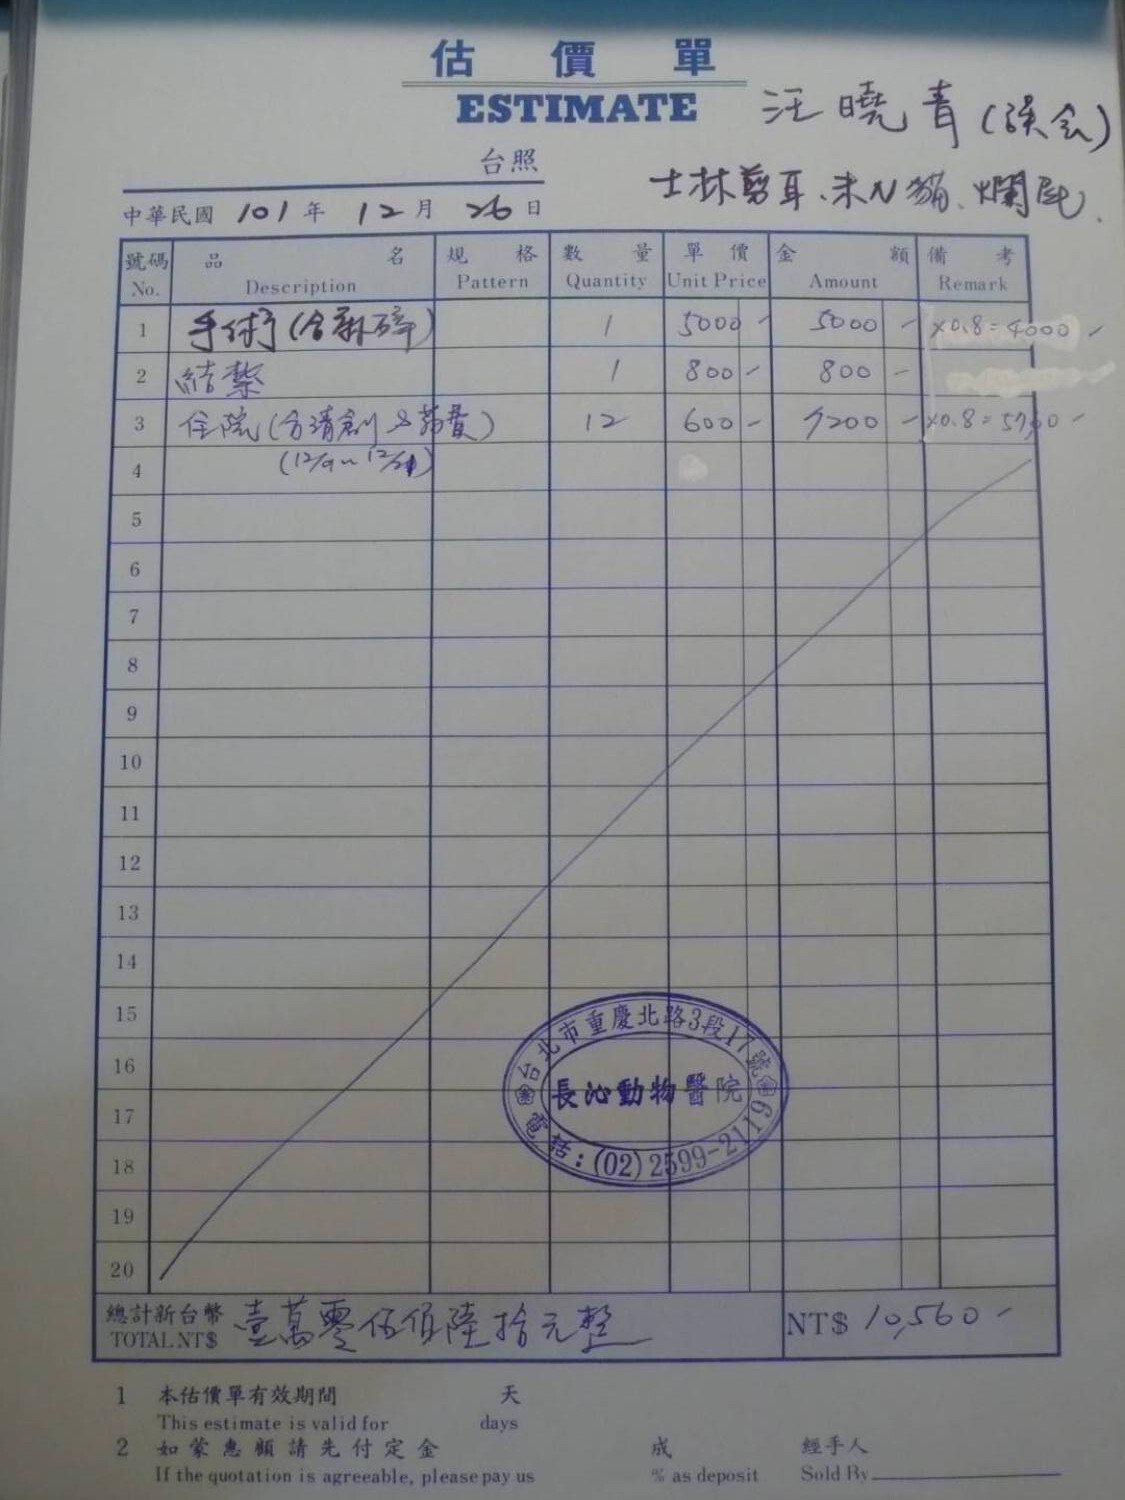 估價單
ESTIMATE
汪曉青(誤会)
台照
士林剪耳、未N貓、爛尾.
中華民國 101 年 12 月 26 日
號碼 品名 規格 數量 單價 金額 備考
No. Description Pattern Quantity Unit Price Amount Remark
1 手術(含麻碎) 1 5000- 5000- ×0.8=4000-
2 結紮 1 800- 800-
3 住院(含清創&葯費) 12 600- 7200- ×0.8=5760-
4 (12/9~12/21)
5
6
7
8
9
10
11
12
13
14
15
16
17
18
19
20
台北市重慶北路3段17號
長沁動物醫院
電話:(02)2599-2119
總計新台幣 壹萬零伍佰陸拾元整 NT$ 10,560-
TOTAL NT$
1 本估價單有效期間 天
This estimate is valid for days
2 如蒙惠顧請先付定金 成 經手人
If the quotation is agreeable, please pay us % as deposit Sold By